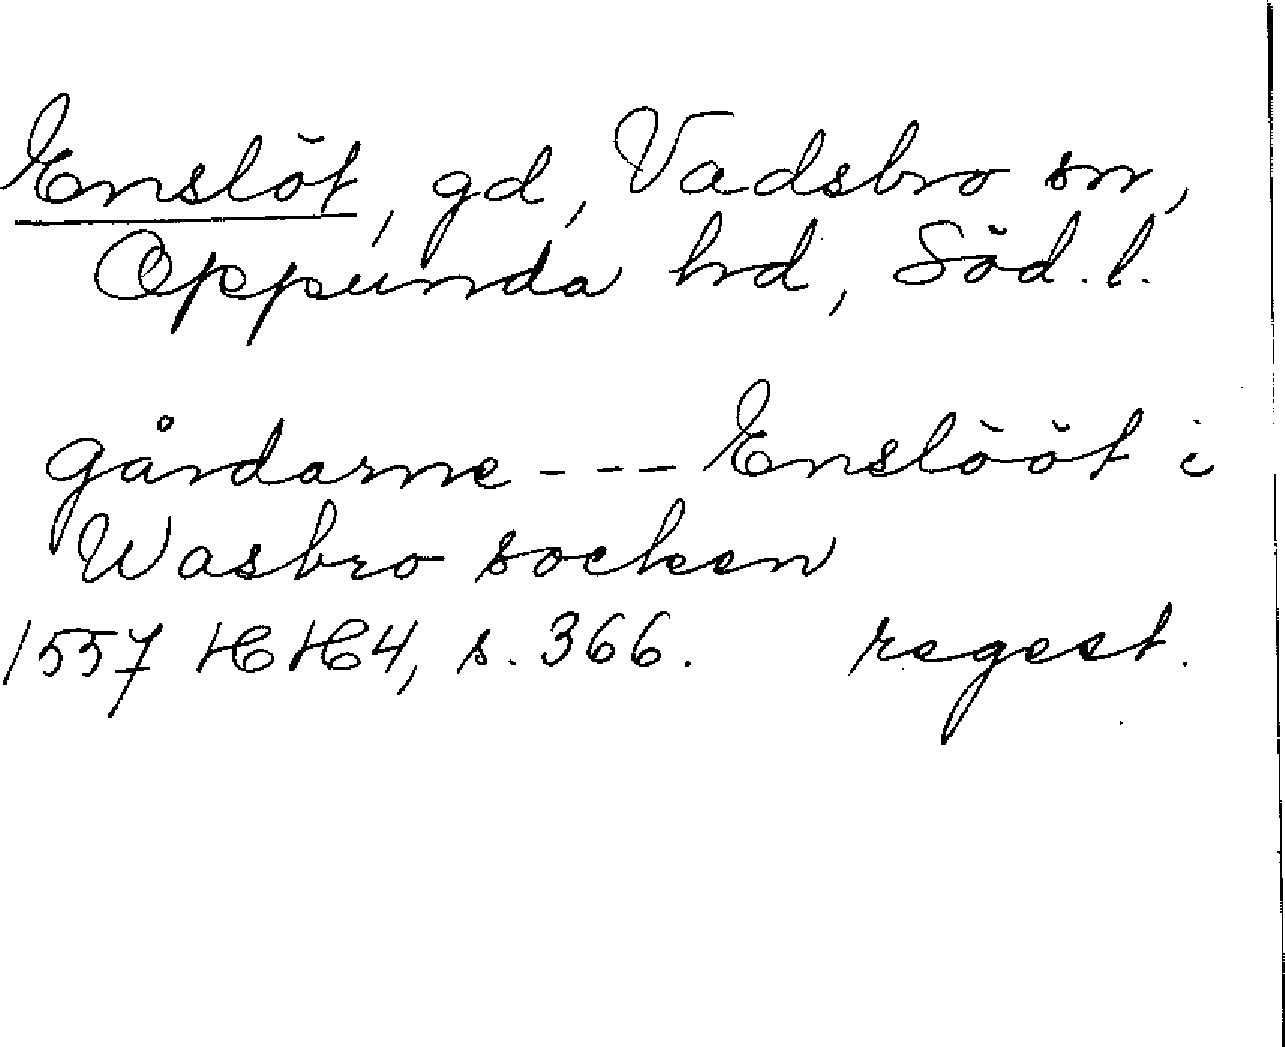 Enslöt, gd, Vadsbro sn,
Oppunda hd, Söd. l.
gårdarne --- Enslööt i
Wasbro socken
1557 HH4, s. 366. regest.